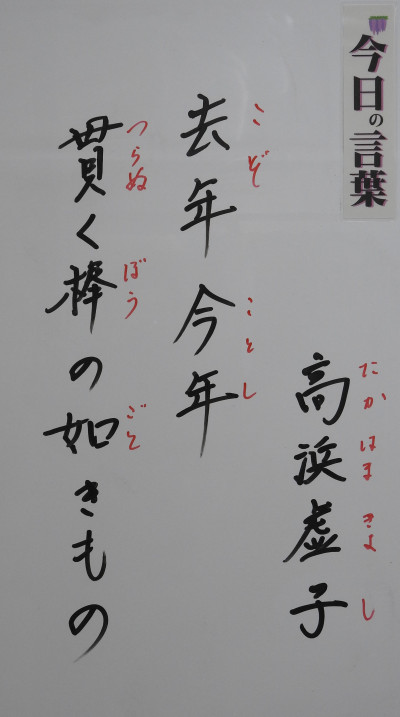 今日の言葉
高浜虚子
たか はま きよ し
去年今年
こぞ ことし
貫く棒の如きもの
つらぬ ぼう ごと